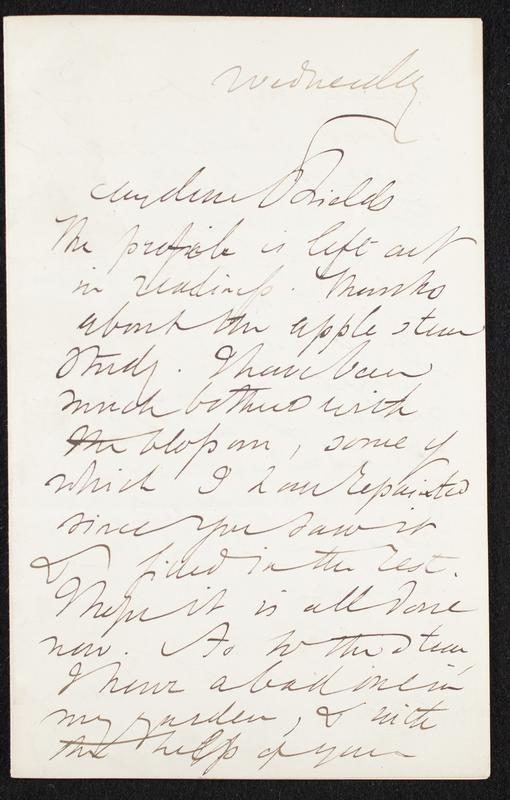 Wednesday
My dear Shields
The profile is left out
in readiness. Thanks
about the apple stem
study. I have been
much bothered with
the blossom, some of
which I have repainted
since you saw it
& filled in the rest.
I hope it is all done
now. As to the stem,
I have a bad one in
my garden, & with
the help of your